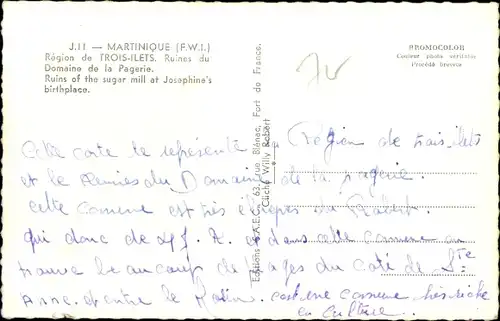 J.11 — MARTINIQUE (F.W.I.)
Région de TROIS-ILETS. Ruines du
Domaine de la Pagerie.
Ruins of the sugar mill at Josephine's
birthplace.
PROMOCOLOR
Couleur photo véritable
Procédé breveté
Editions C.A.E.C. 63, rue Blénac, Fort de France.
Cliché Willy Robert
Cette carte te représente la Région de trois ilets
et le Ruines du Domaine de la pagerie.
cette comune est très du Robert
qui donc de et dans cette comune on
trouve beaucoup de plages du coté de Ste
Anne. et entre le c'est une comune très riche
en culture